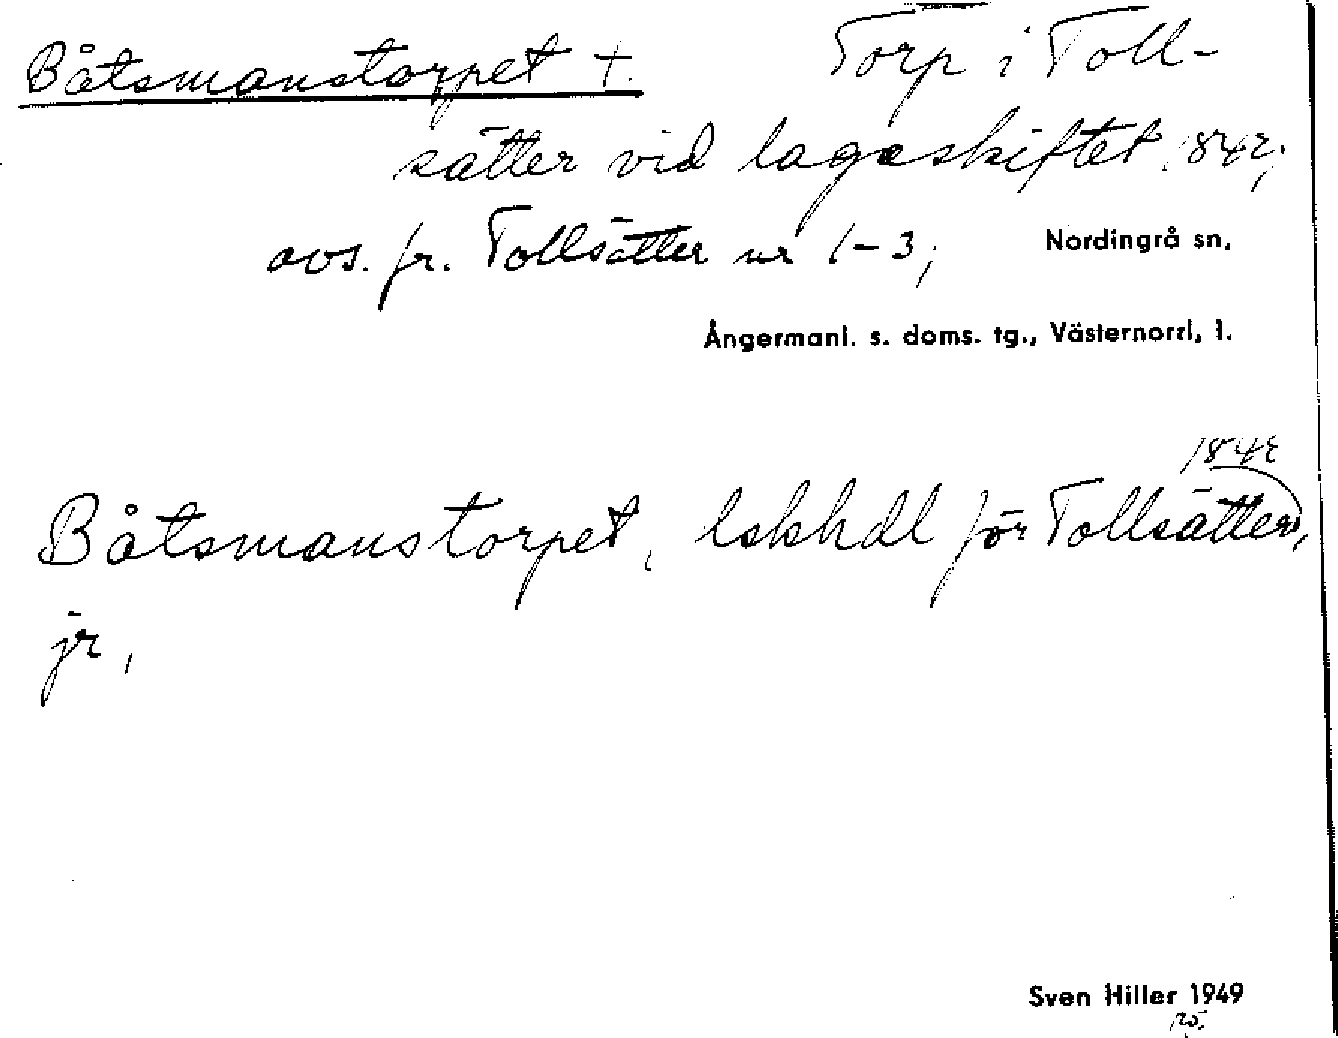 Båtsmanstorpet †. Torp i Toll-
sätter vid lagaskiftet 1842;
avs. fr. Tollsätter nr 1-3; Nordingrå sn.
Ångermanl. s. doms. tg., Västernorrl. l.
1842
Båtsmanstorpet, lskhdl för Tollsätter,
jr,
Sven Hiller 1949